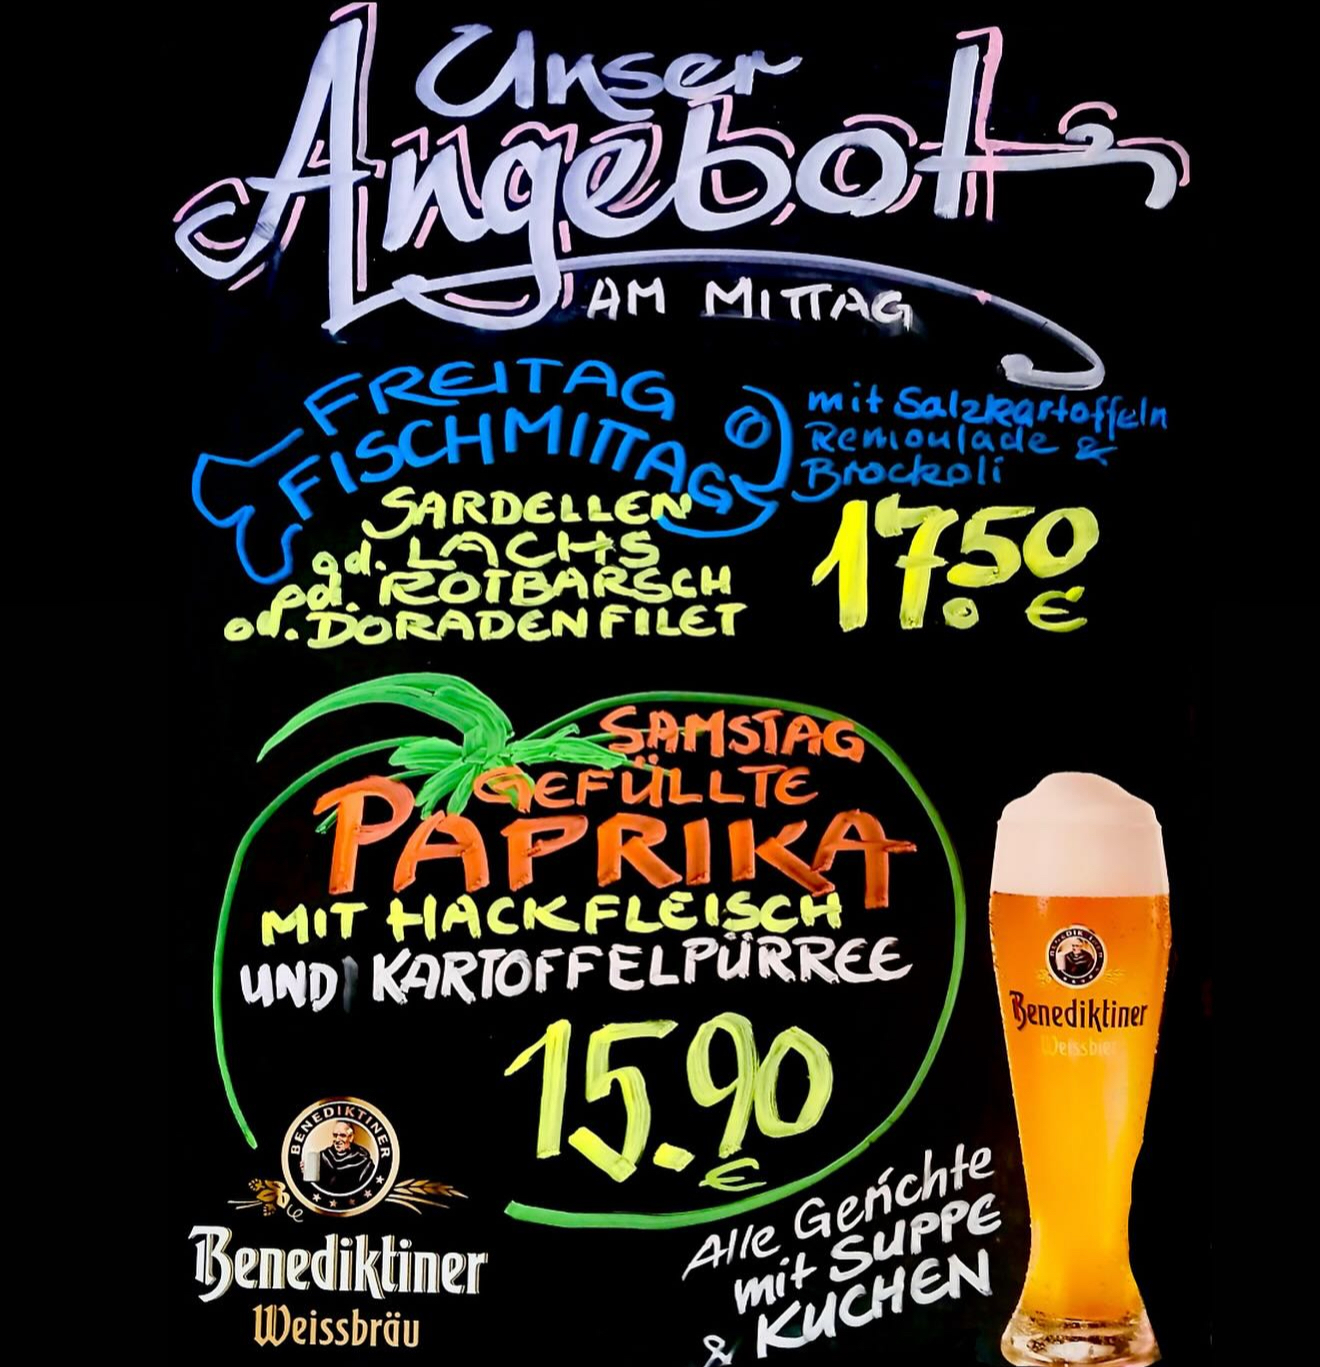 Unser
Angebot
AM MITTAG
FREITAG
FISCHMITTAG
mit Salzkartoffeln
Remoulade &
Brockoli
SARDELLEN
od. LACHS
od. ROTBARSCH
od. DORADENFILET
17.50
€
SAMSTAG
GEFÜLLTE
PAPRIKA
MIT HACKFLEISCH
UND KARTOFFELPÜRREE
15.90
€
Alle Gerichte
mit SUPPE
& KUCHEN
BENEDIKTINER
Benediktiner
Weissbräu
Benediktiner
Weissbier